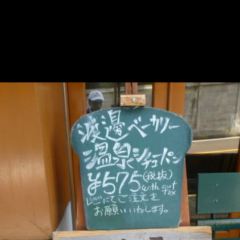 渡邊ベーカリー
温泉シチューパン
¥575(税抜)
without tax
レジにてご注文を
お願いいたします。